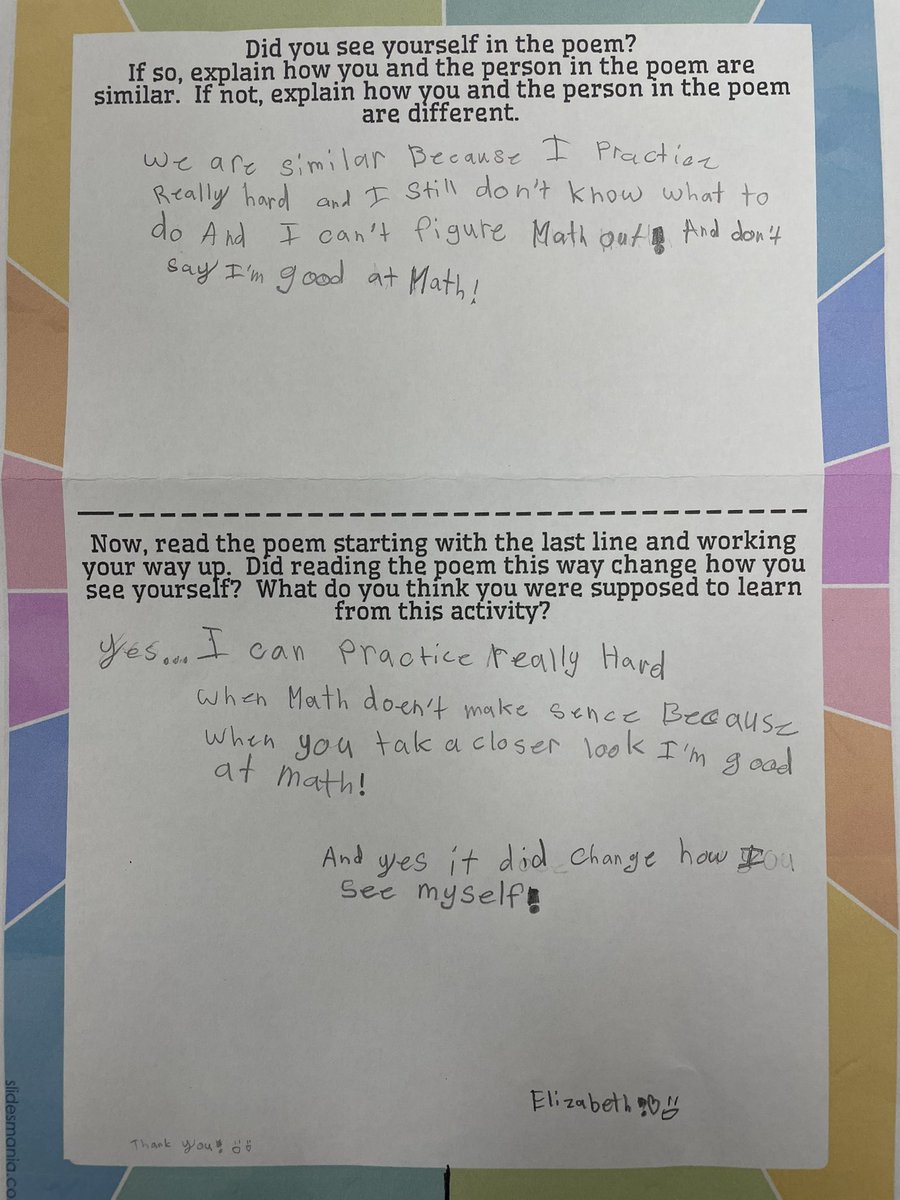 Did you see yourself in the poem?
If so, explain how you and the person in the poem are
similar. If not, explain how you and the person in the poem
are different.
We are similar Because I Practice
Really hard and I still don't know what to
do And I can't figure Math out! And don't
say I'm good at Math!
Now, read the poem starting with the last line and working
your way up. Did reading the poem this way change how you
see yourself? What do you think you were supposed to learn
from this activity?
Yes.... I can Practice really Hard
when Math doen't make sence Because
when you tak a closer look I'm good
at math!
And yes it did change how I
see myself!
Elizabeth!♡
Thank you!
slidesmania.co